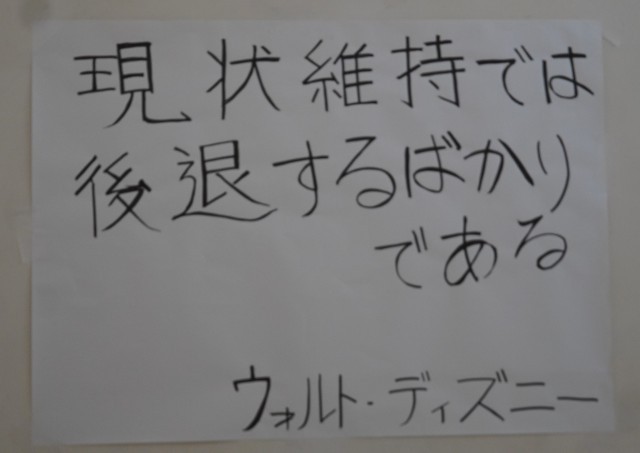 現状維持では
後退するばかり
である
ウォルト・ディズニー